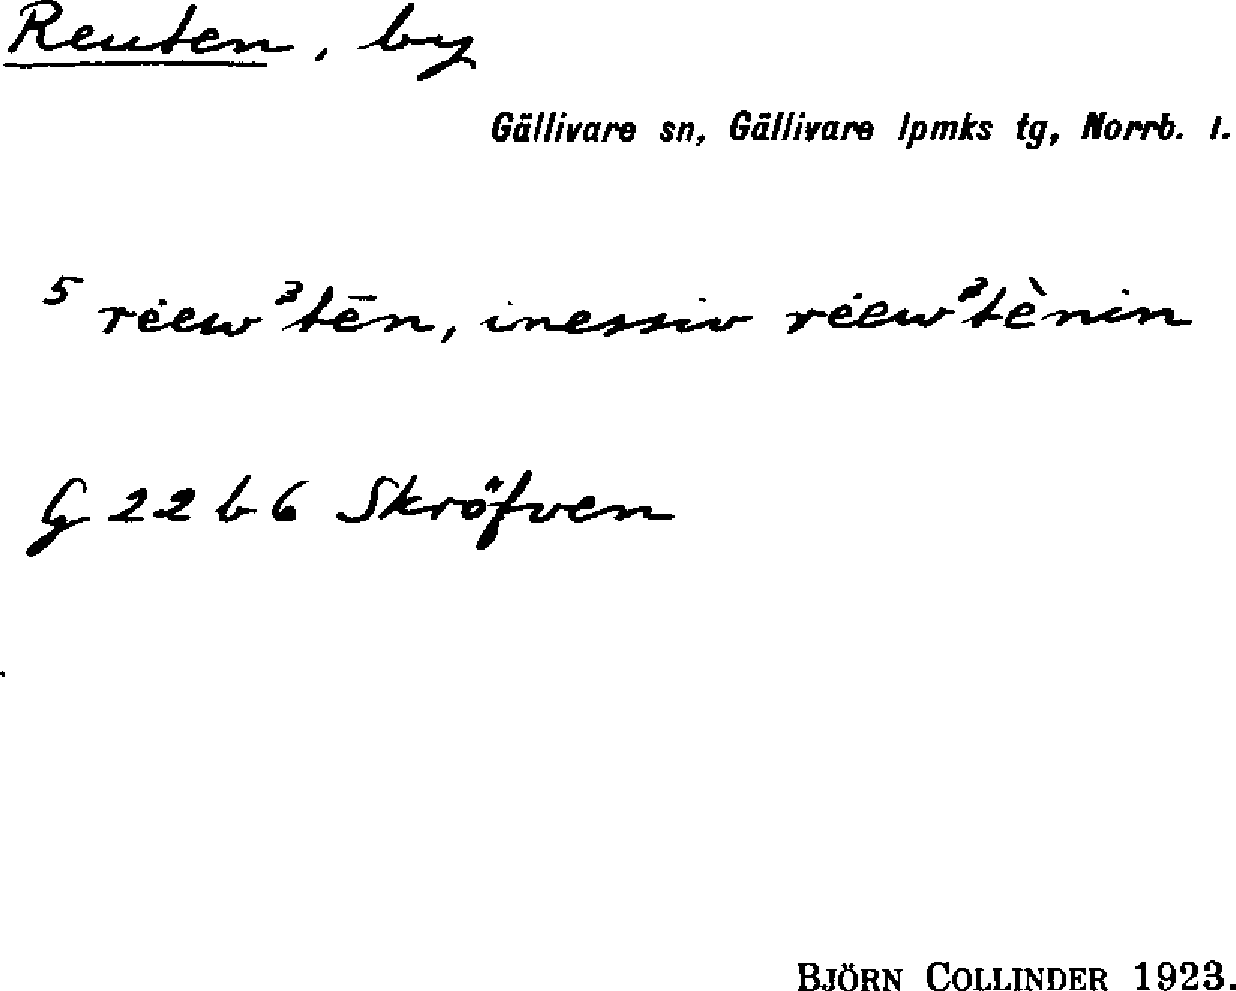 Reuten, by
Gällivare sn, Gällivare lpmks tg, Norrb. l.
⁵ réew³tēn, inessiv réew³tènin
G 22 b 6 Skröfven
BJÖRN COLLINDER 1923.